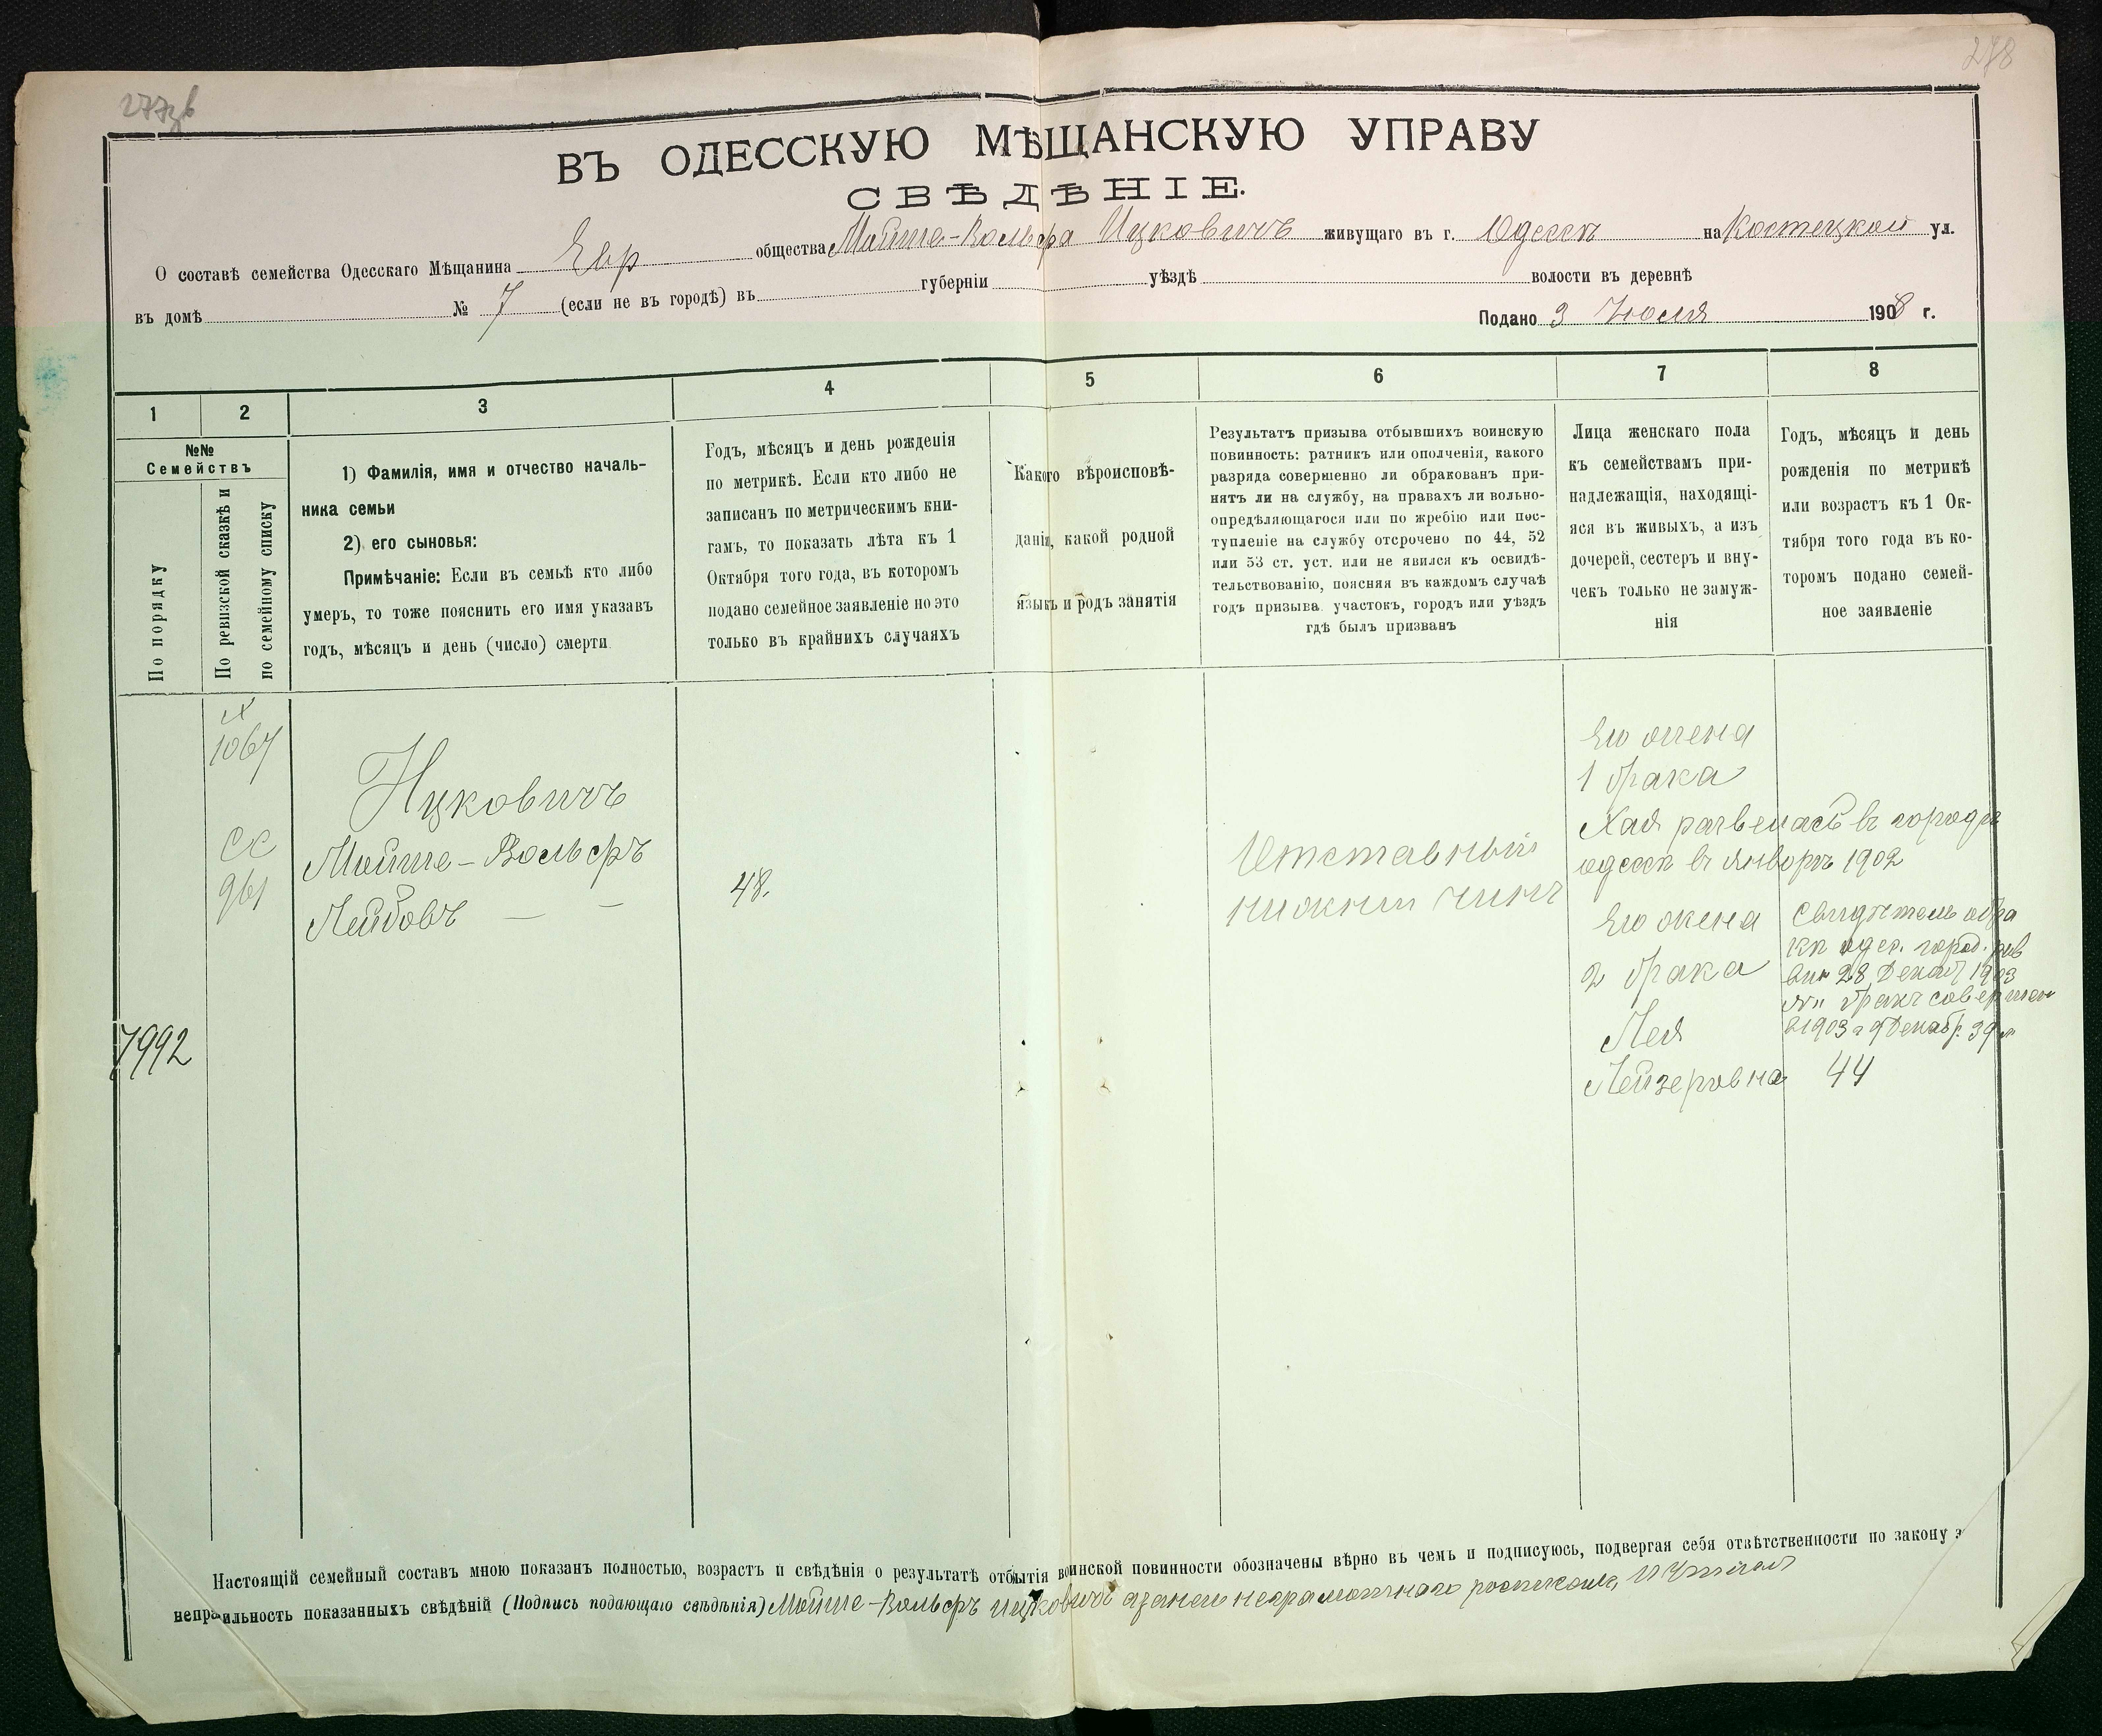 277об
278
ВЪ ОДЕССКУЮ МѢЩАНСКУЮ УПРАВУ
СВѢДѢНІЕ.
О составѣ семейства Одесскаго Мѣщанина Евр общества Мойше-Вольфа Ицковичъ живущаго въ г. Одессѣ на Костецкой ул.
въ домѣ № 7 (если не въ городѣ) въ губерніи уѣздѣ волости въ деревнѣ
Подано 3 Июля 1908 г.
1 2 3 4 5 6 7 8
№№
Семействъ
По порядку
По ревизской сказкѣ и
по семейному списку
1) Фамилія, имя и отчество началь-
ника семьи
2) его сыновья:
Примѣчаніе: Если въ семьѣ кто либо
умеръ, то тоже пояснить его имя указавъ
годъ, мѣсяцъ и день (число) смерти
Годъ, мѣсяцъ и день рожденія
по метрикѣ. Если кто либо не
записанъ по метрическимъ кни-
гамъ, то показать лѣта къ 1
Октября того года, въ которомъ
подано семейное заявленіе но это
только въ крайнихъ случаяхъ
Какого вѣроисповѣ-
данія, какой родной
языкъ и родъ занятія
Результатъ призыва отбывшихъ воинскую
повинность: ратникъ или ополченія, какого
разряда совершенно ли обракованъ при-
нятъ ли на службу, на правахъ ли вольно-
опредѣляющагося или по жребію или пос-
тупленіе на службу отсрочено по 44, 52
или 53 ст. уст. или не явился къ освидѣ-
тельствованію, поясняя въ каждомъ случаѣ
годъ призыва участокъ, городъ или уѣздъ
гдѣ былъ призванъ
Лица женскаго пола
къ семействамъ при-
надлежащія, находящі-
яся въ живыхъ, а изъ
дочерей, сестеръ и вну-
чекъ только не замуж-
нія
Годъ, мѣсяцъ и день
рожденія по метрикѣ
или возрастъ къ 1 Ок-
тября того года въ ко-
торомъ подано семей-
ное заявленіе
7992
1067
СС
961
Ицковичъ
Мойше-Вольфъ
Лейбовъ — —
48.
Отставный
нижний чинъ
Его жена
1 брака
Хая развелась в городѣ
одессѣ в январѣ 1902
Его жена
2 брака
Лея
Лейзеровна
Свидѣтель о бра
кѣ одес. город. рав
вин 28 Декаб 1903
бракъ совершен
в 1903 г Декабр.
44
Настоящій семейный составъ мною показанъ полностью, возрастъ и свѣдѣнія о результатѣ отбытія воинской повинности обозначены вѣрно въ чемъ и подписуюсь, подвергая себя отвѣтственности по закону з
неправильность показанныхъ свѣдѣній (Подпись подающаго свѣдѣнія) Мойше-Вольфъ Ицковичъ а за него неграмотнаго